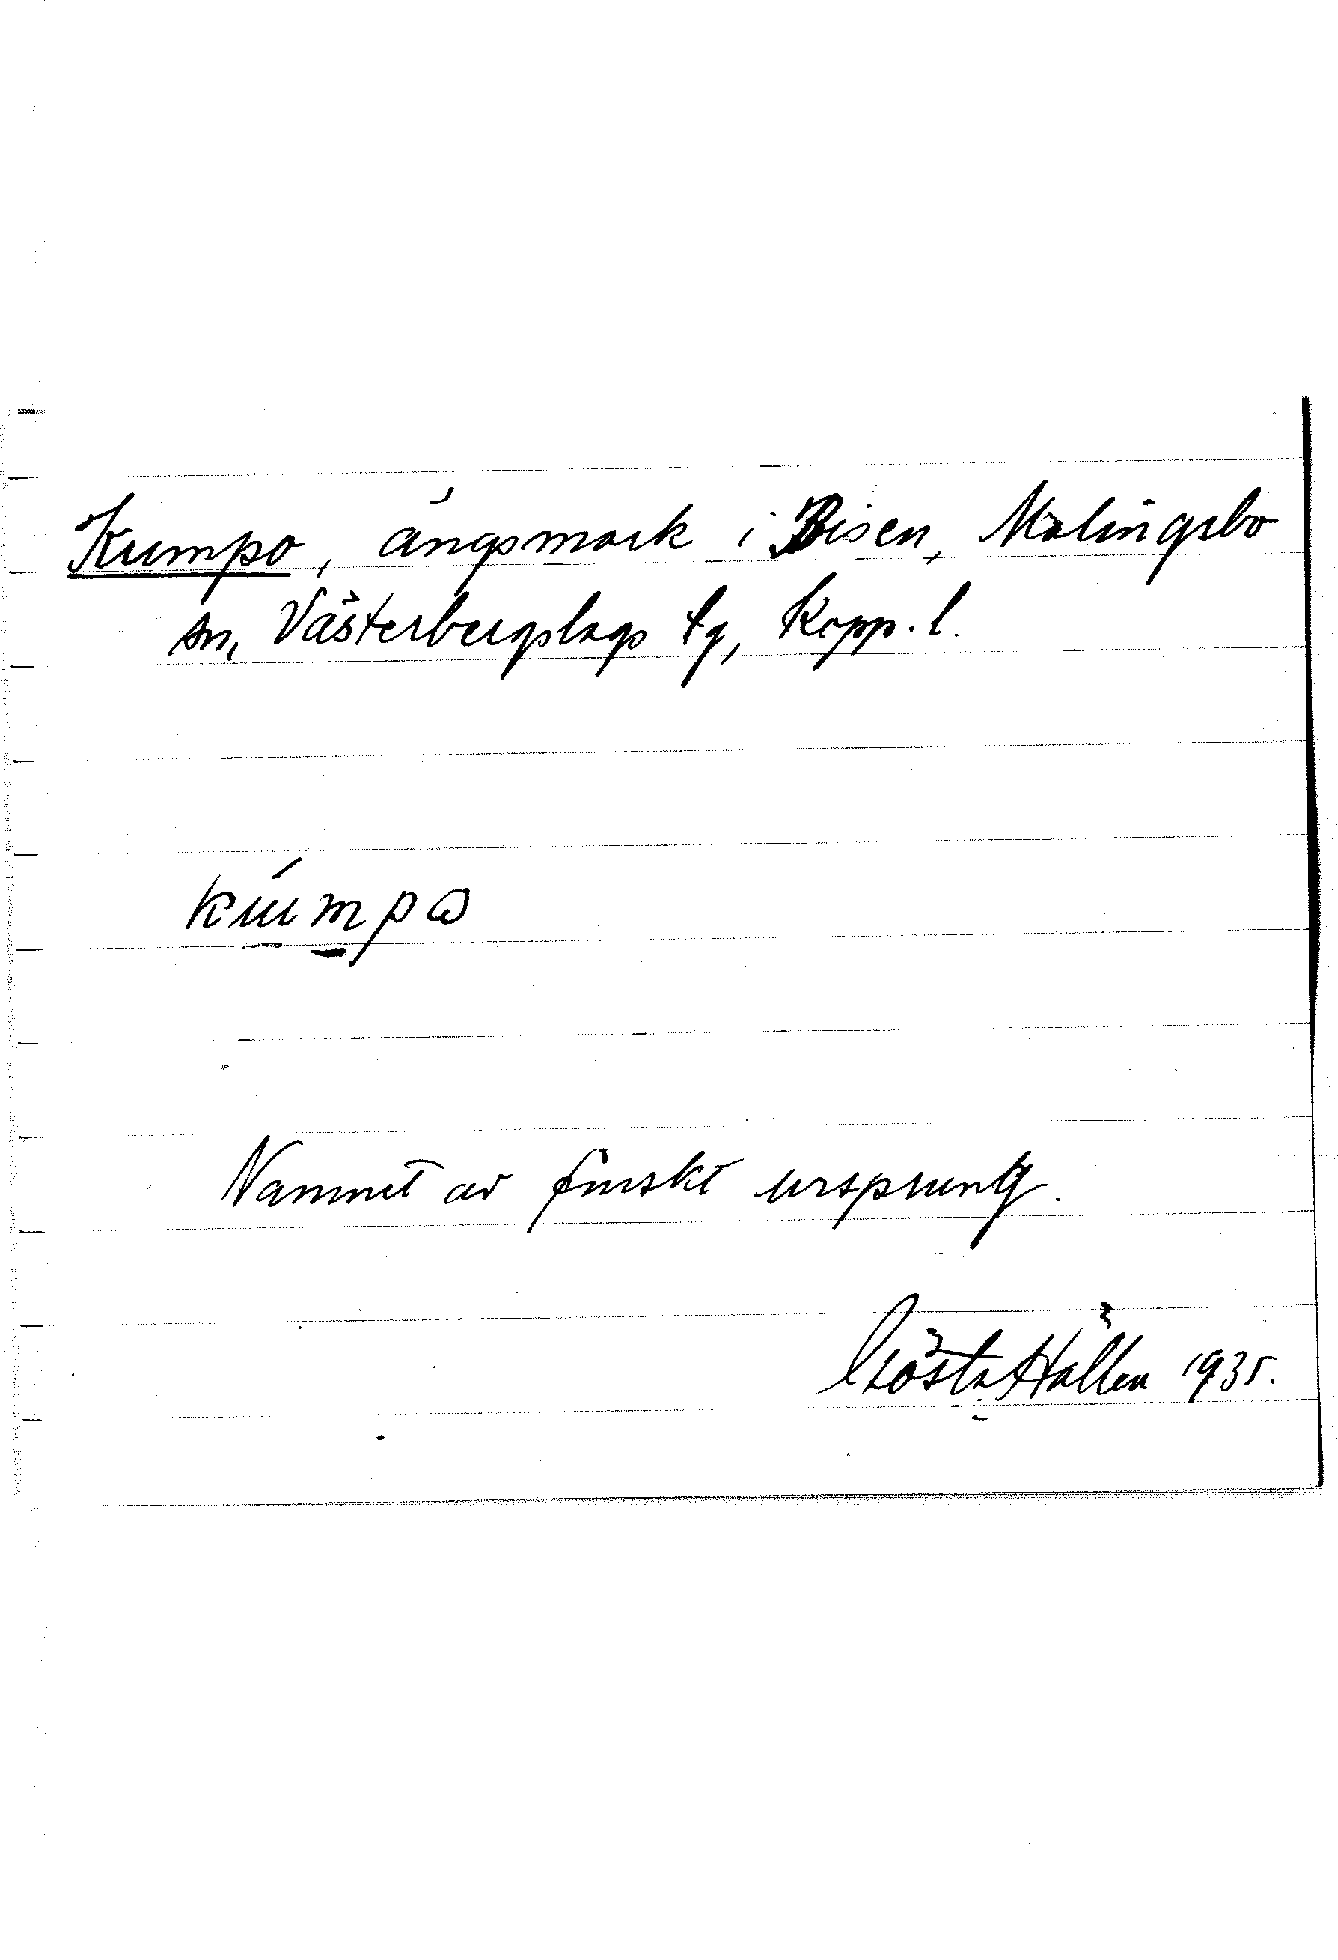 Kumpo, ängsmark i Bisen, Malingsbo
sn, Västerbergslags tg, Kopp. l.
kúmpo
Namnet av finskt ursprung.
Gösta Hallén 1935.